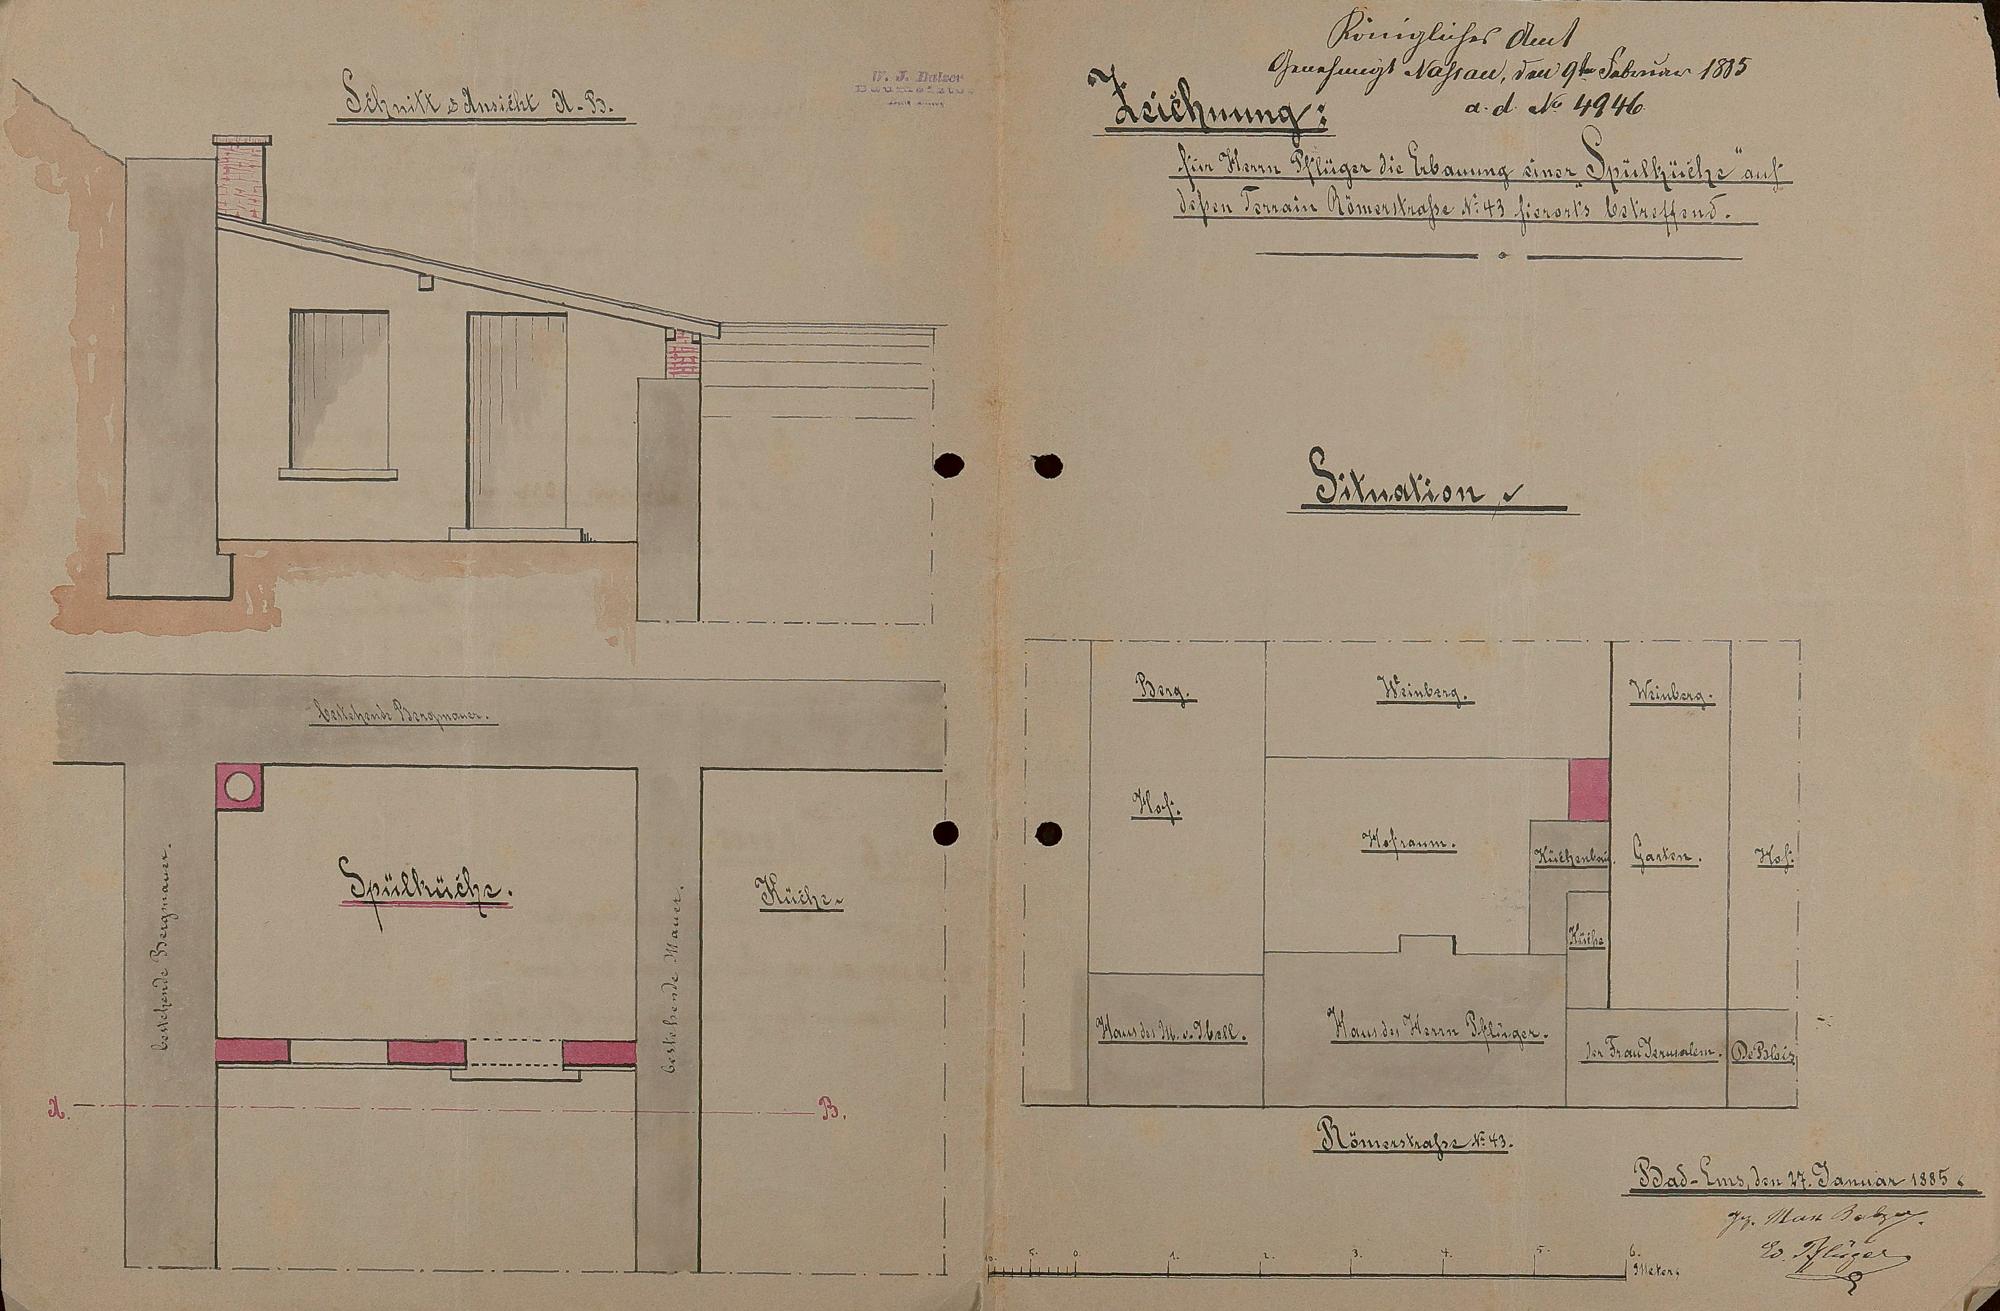 Schnitt & Ansicht A-B.
W. J. Balzer
Königliches Amt
Genehmigt Nassau, den 9ten Februar 1885
a. d. No 4946
Zeichnung:
für Herrn Pflüger die Erbauung einer „Spülküche“ auf
deßen Terrain Römerstraße No 43 hierorts betreffend.
Situation
bestehende Bergmauer.
bestehende Bergmauer.
Spülküche.
bestehende Mauer.
Küche
A.
B.
Berg.
Weinberg.
Weinberg.
Hof.
Hofraum.
Küchenbau.
Garten.
Hof.
Küche
Haus des
Haus des Herrn Pflüger.
der Frau Jerusalem.
De Bloiz
Römerstraße No 43.
Bad-Ems, den 27. Januar 1885.
gez. Max Balzer.
Ed. Pflüger
10. 5. 0. 1. 2. 3. 4. 5. 6.
Meter.